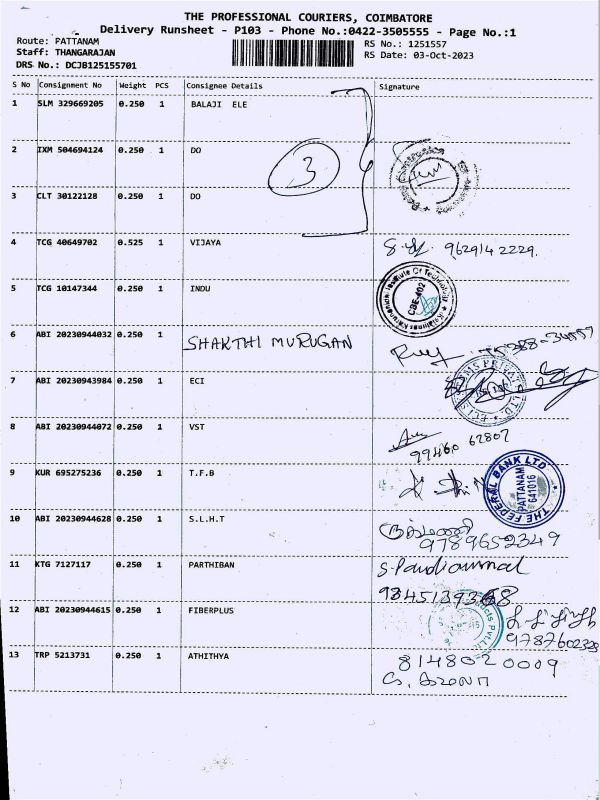 THE PROFESSIONAL COURIERS, COIMBATORE
Delivery Runsheet - P103 - Phone No.:0422-3505555 - Page No.:1
Route: PATTANAM
RS No.: 1251557
Staff: THANGARAJAN
RS Date: 03-Oct-2023
DRS No.: DCJB125155701
S No Consignment No Weight PCS Consignee Details Signature
1 SLM 329669205 0.250 1 BALAJI ELE
2 IXM 504694124 0.250 1 DO
3
3 CLT 30122128 0.250 1 DO
4 TCG 40649702 0.525 1 VIJAYA 962914 2229.
5 TCG 10147344 0.250 1 INDU
Institute Of Technology
CBE-402
6 ABI 20230944032 0.250 1 SHAKTHI MURUGAN
7 ABI 20230943984 0.250 1 ECI
8 ABI 20230944072 0.250 1 VST
99460 62807
9 KUR 695275236 0.250 1 T.F.B
THE FEDERAL BANK LTD.
PATTANAM
641016
10 ABI 20230944628 0.250 1 S.L.H.T
9789652349
11 KTG 7127117 0.250 1 PARTHIBAN S.Pandiammal
12 ABI 20230944615 0.250 1 FIBERPLUS
13 TRP 5213731 0.250 1 ATHITHYA 814802 0009